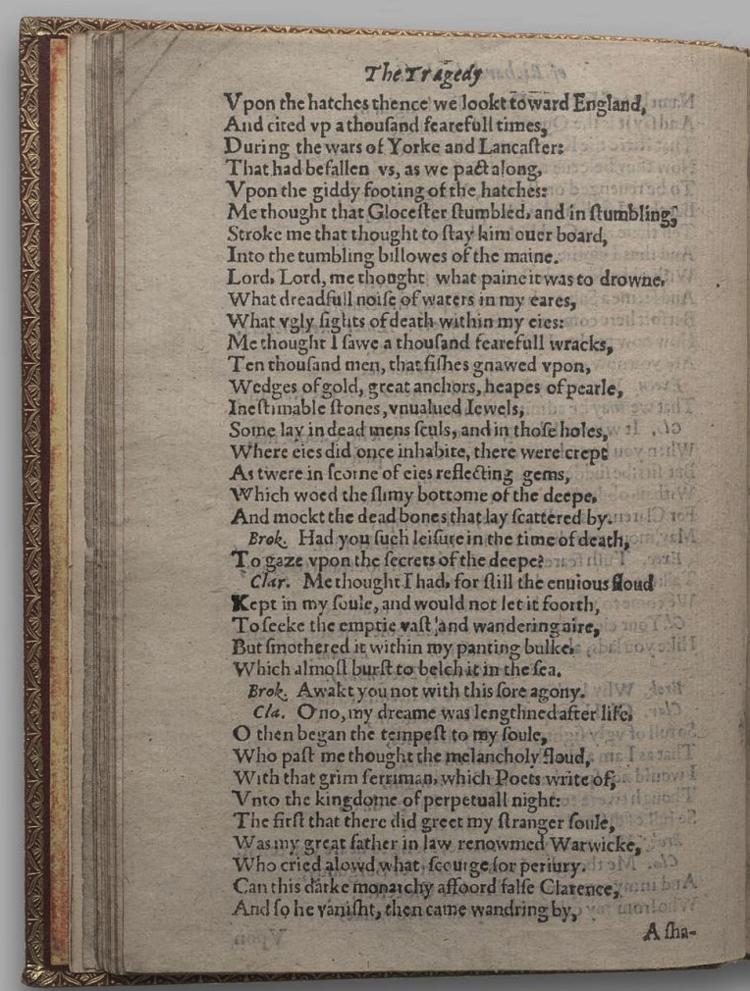 The Tragedy
Vpon the hatches thence we lookt toward England,
And cited vp a thouſand fearefull times,
During the wars of Yorke and Lancaſter:
That had befallen vs, as we paſt along,
Vpon the giddy footing of the hatches:
Me thought that Gloceſter ſtumbled, and in ſtumbling,
Stroke me that thought to ſtay him ouer board,
Into the tumbling billowes of the maine.
Lord, Lord, me thought what paine it was to drowne,
What dreadfull noiſe of waters in my eares,
What vgly ſights of death within my eies:
Me thought I ſawe a thouſand fearefull wracks,
Ten thouſand men, that fiſhes gnawed vpon,
Wedges of gold, great anchors, heapes of pearle,
Ineſtimable ſtones, vnualued Iewels,
Some lay in dead mens ſculs, and in thoſe holes,
Where eies did once inhabite, there were crept
As twere in ſcorne of eies reflecting gems,
Which woed the ſlimy bottome of the deepe,
And mockt the dead bones that lay ſcattered by.
Brok. Had you ſuch leiſure in the time of death,
To gaze vpon the ſecrets of the deepe?
Clar. Me thought I had, for ſtill the enuious floud
Kept in my ſoule, and would not let it foorth,
To ſeeke the emptie vaſt and wandering aire,
But ſmothered it within my panting bulke.
Which almoſt burſt to belch it in the ſea.
Brok. Awakt you not with this ſore agony.
Cla. O no, my dreame was lengthned after life.
O then began the tempeſt to my ſoule,
Who paſt me thought the melancholy floud,
With that grim ferriman, which Poets write of,
Vnto the kingdome of perpetuall night:
The firſt that there did greet my ſtranger ſoule,
Was my great father in law renowmed Warwicke,
Who cried alowd what ſcourge for periury.
Can this darke monarchy affoord falſe Clarence,
And ſo he vaniſht, then came wandring by,
A ſha-